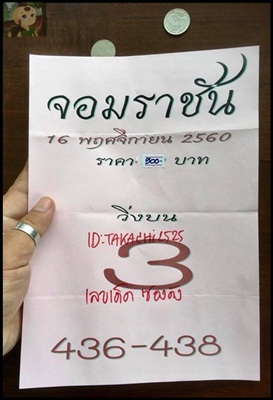 จอมราชัน
16 พฤศจิกายน 2560
ราคา 300.- บาท
วิ่งบน
ID:TAKACHI2525
3
เลขเด็ด ซองดัง
436-438